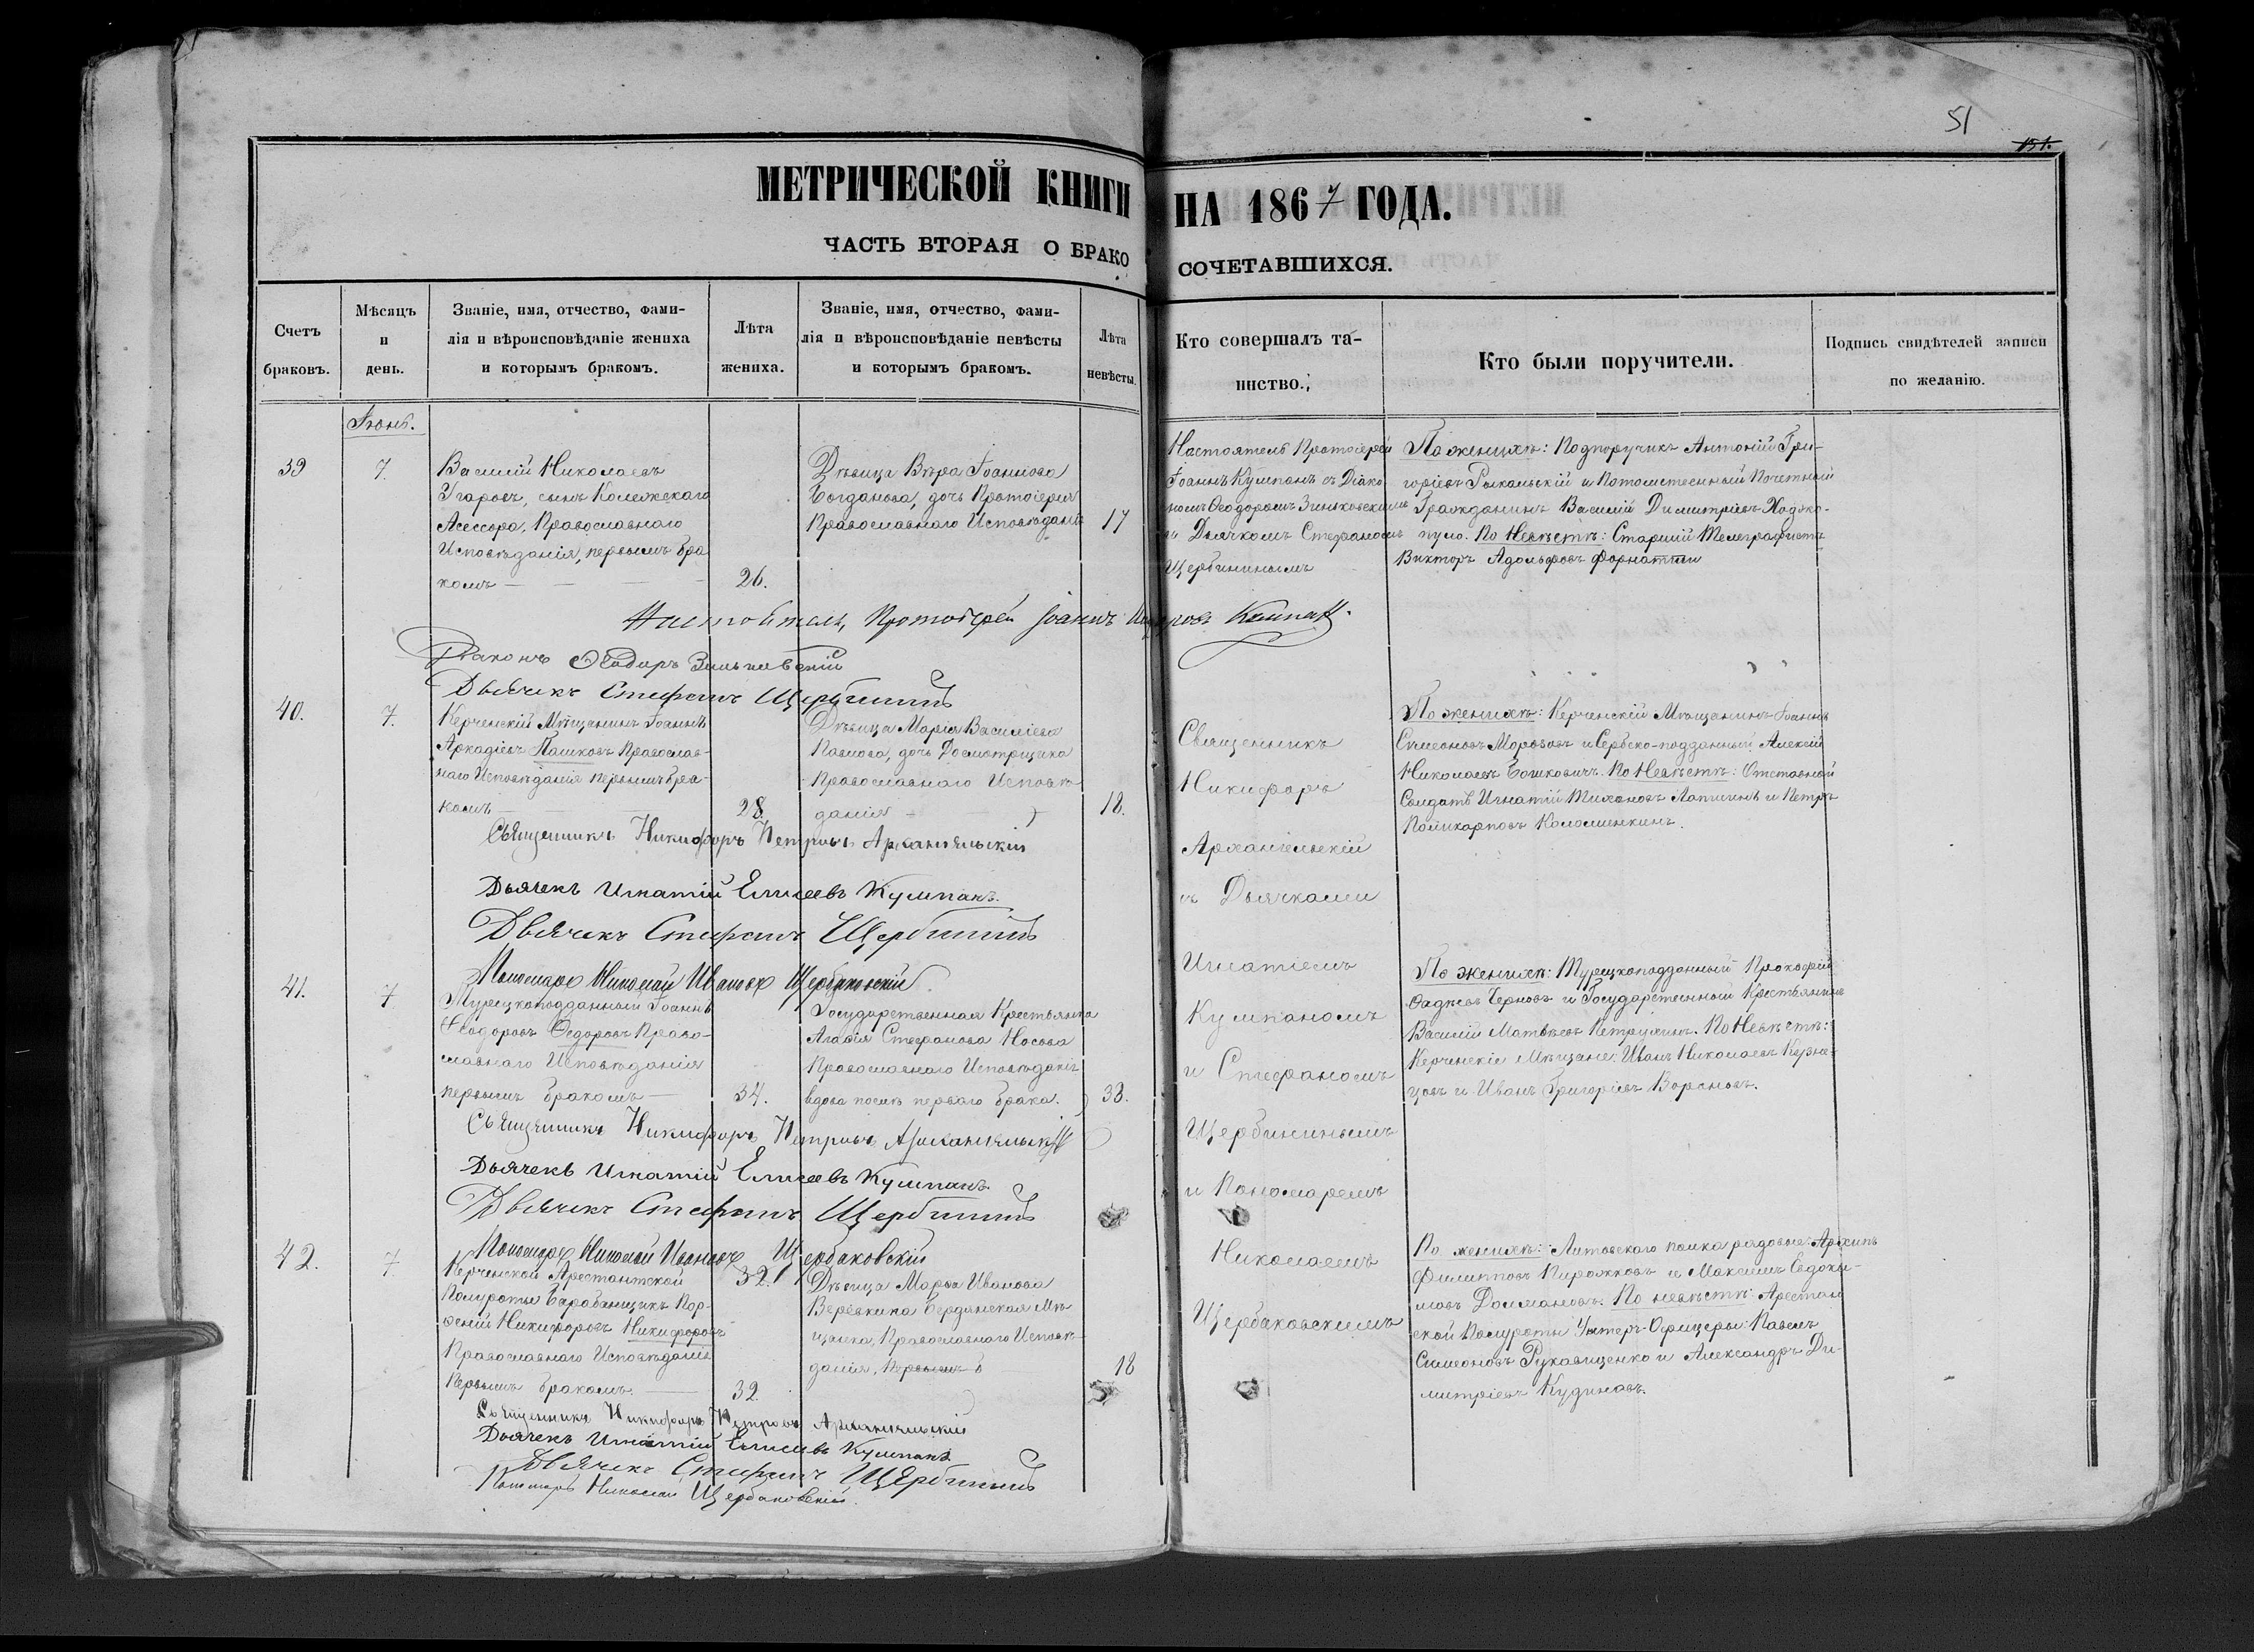 51
151.
МЕТРИЧЕСКОЙ КНИГИ НА 1867 ГОДА.
ЧАСТЬ ВТОРАЯ О БРАКОСОЧЕТАВШИХСЯ.
Счетъ браковъ.
Мѣсяцъ и день.
Званіе, имя, отчество, фами-
лія и вѣроисповѣданіе жениха
и которымъ бракомъ.
Лѣта
жениха.
Званіе, имя, отчество, фами-
лія и вѣроисповѣданіе невѣсты
и которымъ бракомъ.
Лѣта
невѣсты.
Кто совершалъ та-
инство.
Кто были поручители.
Подпись свидѣтелей записи
по желанію.
Іюнь.
39
7.
Василій Николаевъ
Угаровъ, сынъ Колежскаго
Асессора, Православнаго
Исповѣданія, первымъ бра
комъ —
26.
Дѣвица Вѣра Іоаннова
Богданова, дочь Протоіерея
Православнаго Исповѣданія
17
Настоятель Протоіерей
Іоаннъ Кумпанъ съ Діако-
номъ Ѳеодоромъ Зиньковскимъ
и Дьячкомъ Стефаномъ
Щербининымъ
По женихѣ: Подпоручикъ Антоній Гри-
горіевъ Рыкальскій и Потомственный Почетный
Гражданинъ Василій Димитріевъ Ходжо-
пуло. По Невѣстѣ: Старшій Телеграфистъ
Викторъ Адольфовъ Форнатти
Настоятель, Протоіерей Іоаннъ Кумпанъ.
Діаконъ Ѳеодоръ Зиньковскій
Дьячекъ Стефанъ Щербининъ
40.
7.
Керченскій Мѣщанинъ Іоаннъ
Аркадіевъ Пашковъ Православ-
наго Исповѣданія первымъ бра-
комъ —
28.
Дѣвица Марія Василіева
Павлова, дочь Досмотрщика
Православнаго Исповѣ-
данія —
18.
Священникъ
Никифоръ
Архангельскій
съ Дьячками
Игнатіемъ
Кумпаномъ
и Стефаномъ
Щербининымъ
и Пономаремъ
Николаемъ
Щербаковскимъ
По женихѣ: Керченскій Мѣщанинъ Іоаннъ
Симеоновъ Морозовъ и Сербско-подданный Алексій
Николаевъ Бошковичъ. По Невѣстѣ: Отставной
Солдатъ Игнатій Тихоновъ Лапшинъ и Петръ
Поликарповъ Коломенкинъ.
Священникъ Никифоръ Петровъ Архангельскій
Дьячекъ Игнатій Елисеевъ Кумпанъ.
Дьячекъ Стефанъ Щербининъ
Пономарь Николай Ивановъ Щербаковскій.
41.
7
Турецкоподданный Іоаннъ
Ѳеодоровъ Ѳедоровъ Право-
славнаго Исповѣданія
первымъ бракомъ —
34.
Государственная Крестьянка
Агафія Стефанова Носова
Православнаго Исповѣданія
вдова послѣ перваго брака.
38.
По женихѣ: Турецкоподданный Прокофій
Черновъ и Государственный Крестьянинъ
Василій Матвѣевъ Петрухинъ. По Невѣстѣ:
Керченскіе Мѣщане: Иванъ Николаевъ Кузне-
цовъ и Иванъ Григоріевъ Вороновъ.
Священникъ Никифоръ Петровъ Архангельскій
Дьячекъ Игнатій Елисеевъ Кумпанъ
Дьячекъ Стефанъ Щербининъ
Пономарь Николай Ивановъ Щербаковскій
42.
7.
Керченской Арестантской
Полуроты Барабанщикъ Пор-
феній Никифоровъ Никифоровъ
Православнаго Исповѣданія
Первымъ бракомъ. —
32
32.
Дѣвица Марфа Иванова
Веревкина Бердянская Мѣ-
щанка, Православнаго Исповѣ-
данія, Первымъ б
18
По женихѣ: Литовскаго полка рядовые: Архипъ
Филипповъ Пирожковъ и Максимъ Евдоки-
мовъ Долмановъ. По невѣстѣ: Арестан
ской Полуроты Унтеръ-Офицеры: Павелъ
Симеоновъ Рукавищенко и Александръ Ди-
митріевъ Кудиновъ.
Священникъ Никифоръ Петровъ Архангельскій
Дьячекъ Игнатій Елисеевъ Кумпанъ
Дьячекъ Стефанъ Щербининъ
Пономарь Николай Щербаковскій.